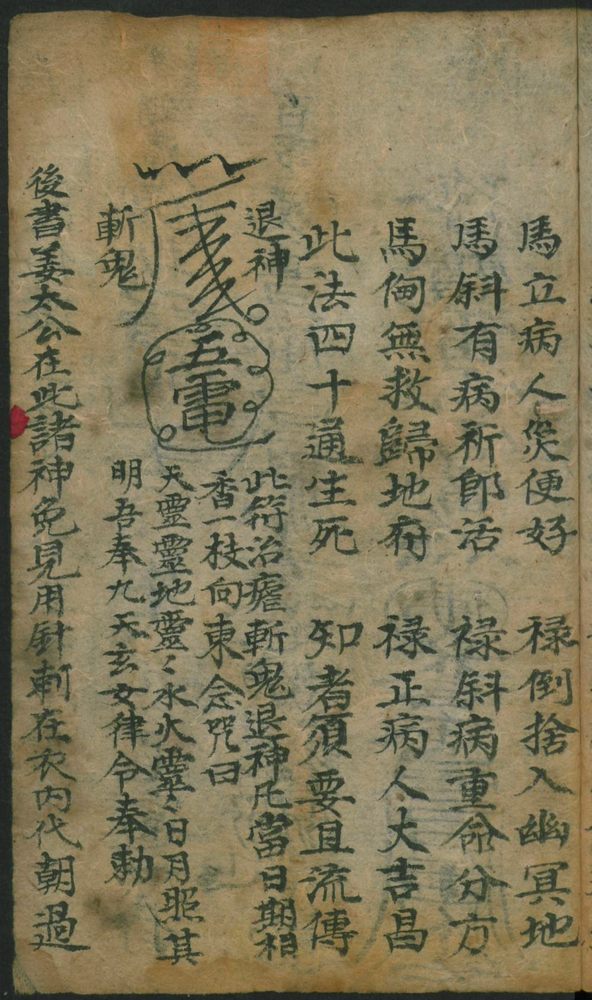 馬立病人災便好　禄倒捨入幽冥地
馬斜有病祈郎活　禄斜病重命分方
馬倒無救歸地府　禄正病人大吉昌
此法四十通生死　知者須要且流傳
退神
斬鬼
五雷
此符治瘧斬鬼退神凡當日期相
香一枝向東念咒曰
天靈靈地靈〻水火靈〻日月照其
明吾奉九天玄女律令奉勅
後書姜太公在此諸神免見用針刺在衣內代朝過